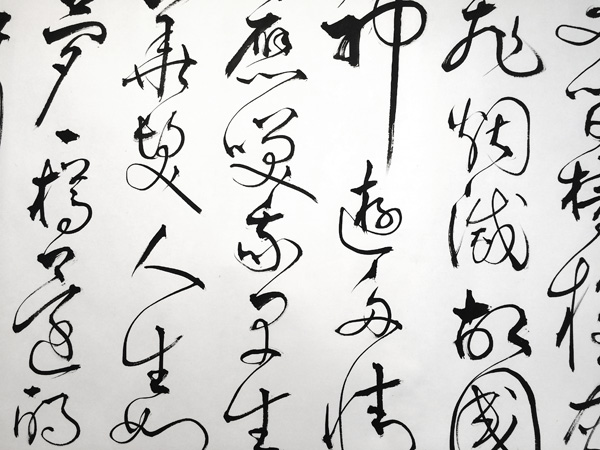 間檣櫓灰
飛烟滅故國
神遊多情
應笑我早生
華髮人生如
夢一樽還酹